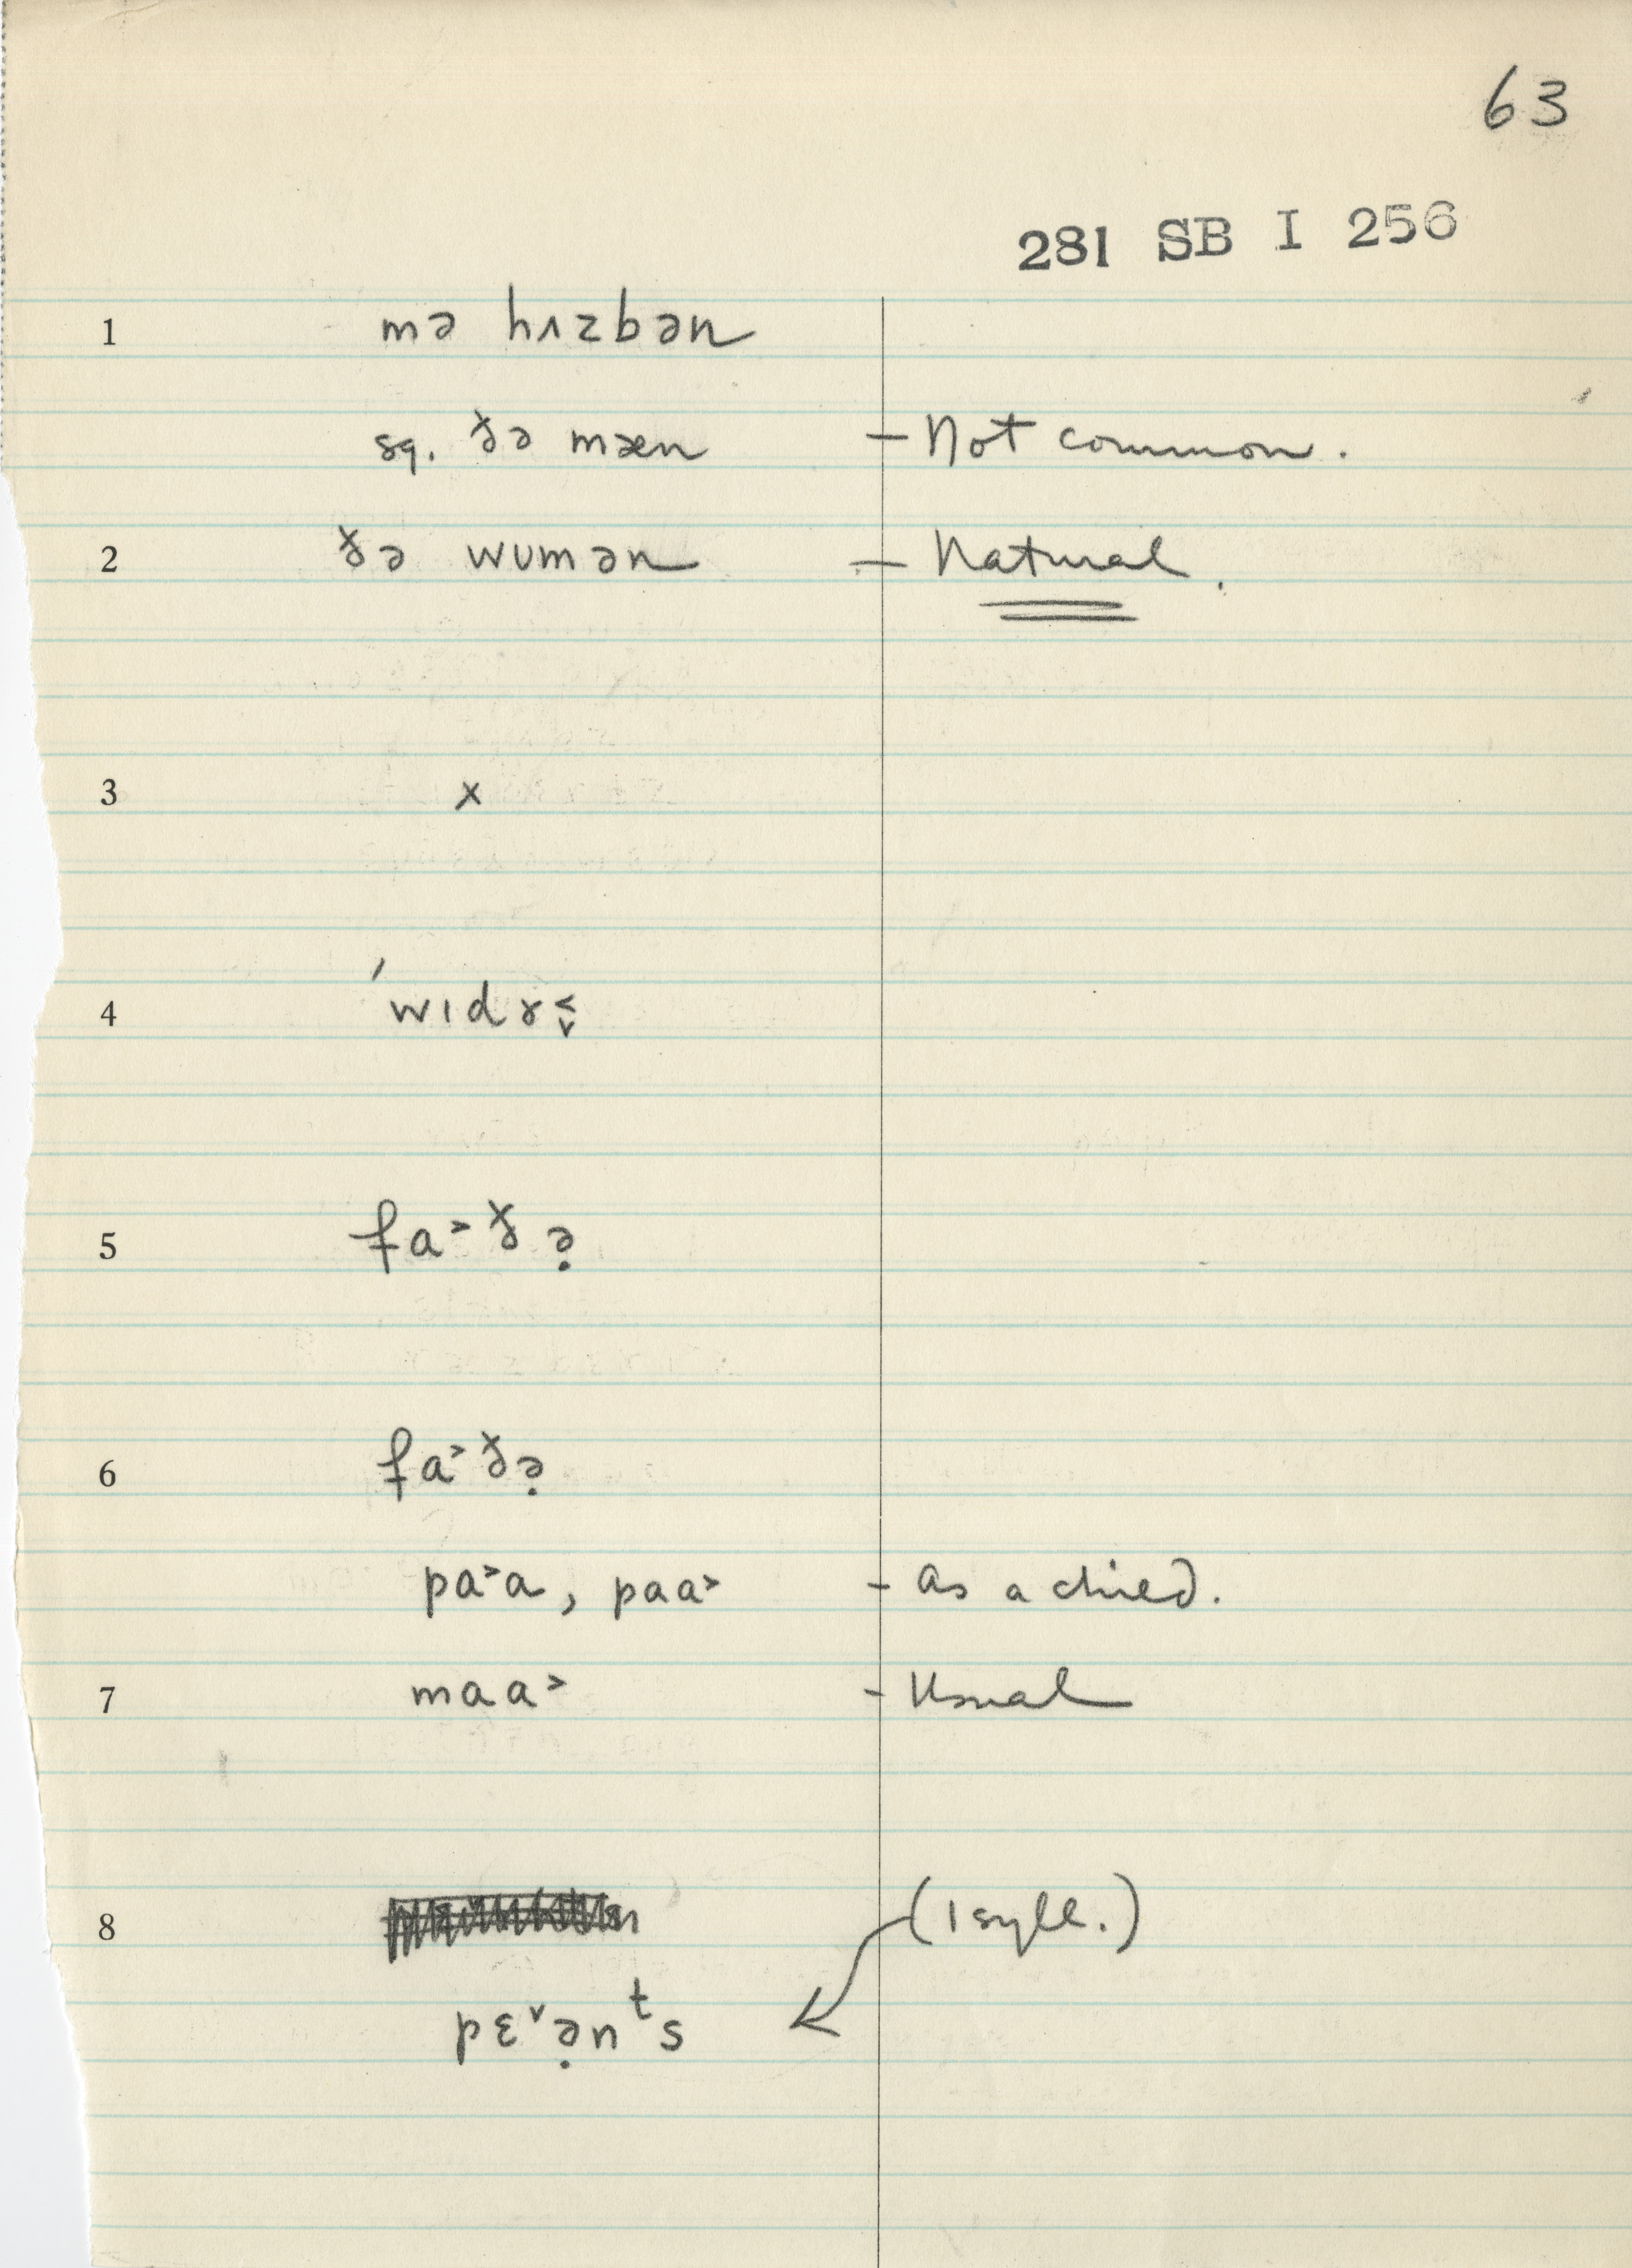 63
281 SB I 256
1 mə hʌzbən
sq. ðə mæn – Not common.
2 ðə wʊmən – Natural.
3 x
4 ˈwɪdɤ˂̬
5 fa˃ðə̣
6 fa˃ðə̣
pa˃a, paa˃ – as a child.
7 maa˃ – Usual
8 (1 syll.)
pɛ˅ə̣nᵗs